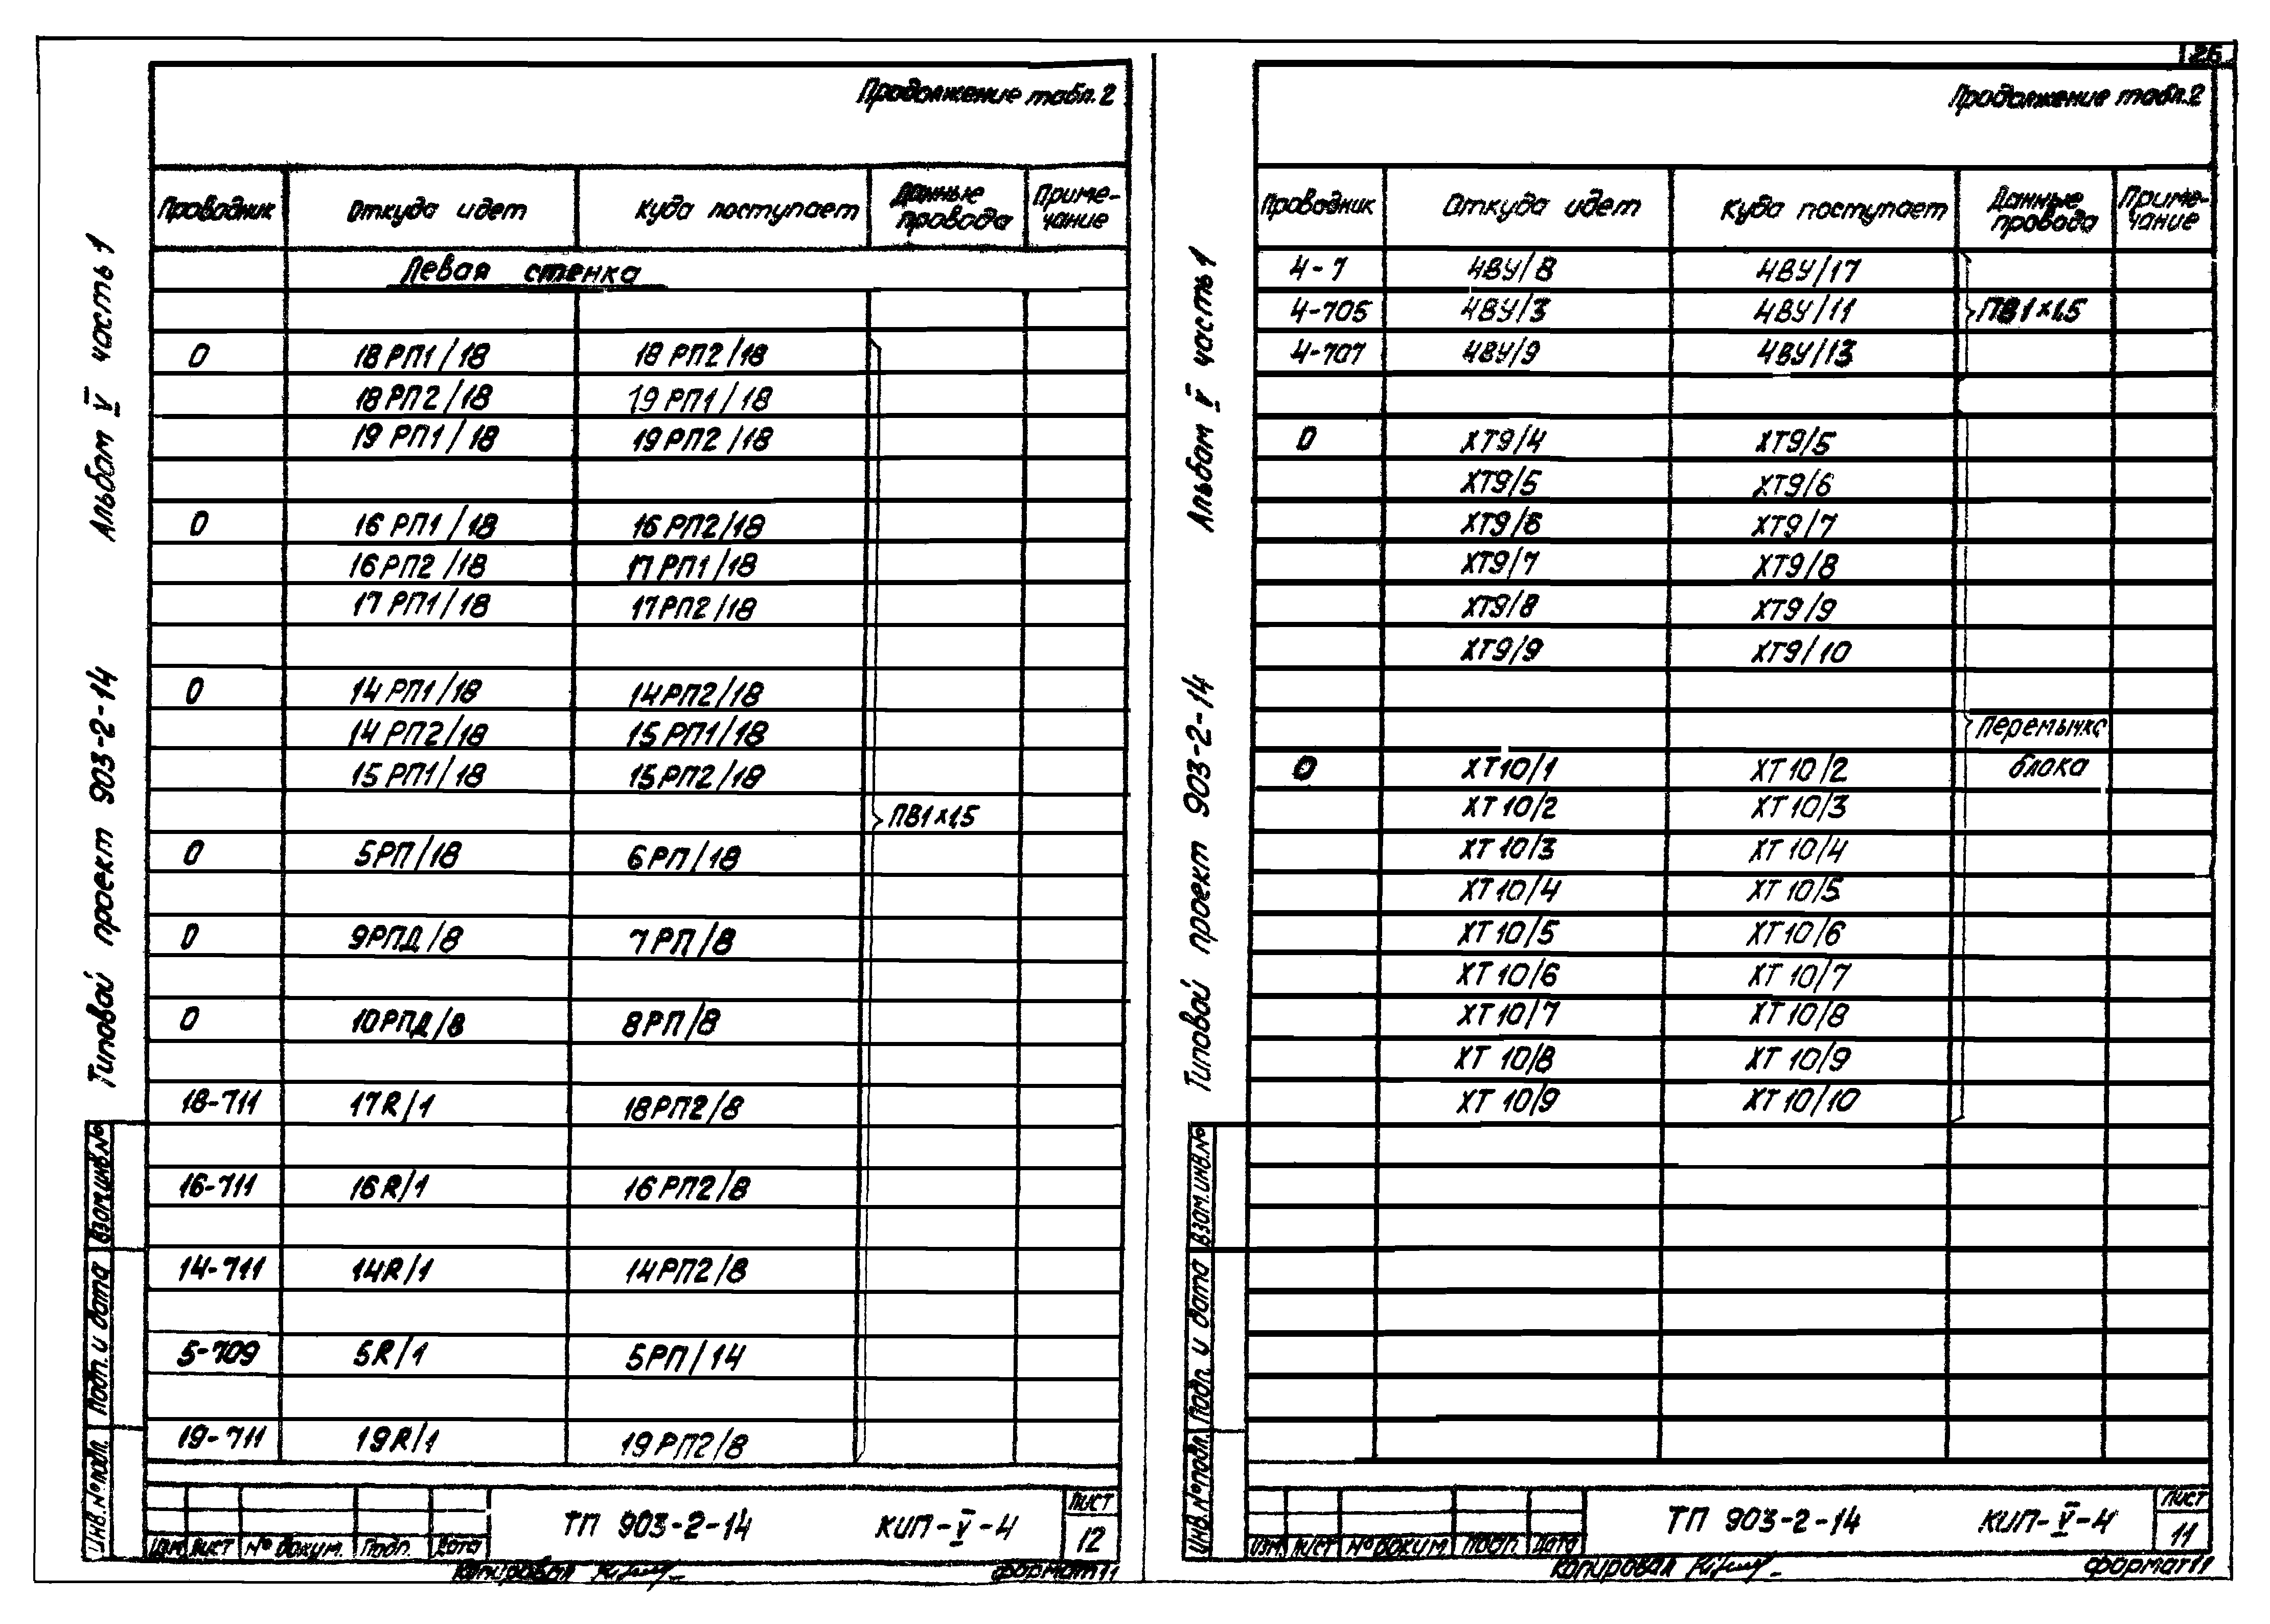 126
Продолжение табл. 2
Проводник Откуда идет Куда поступает Данные провода Примечание
Левая стенка
0 18РП1/18 18РП2/18
18РП2/18 19РП1/18
19РП1/18 19РП2/18
0 16РП1/18 16РП2/18
16РП2/18 17РП1/18
17РП1/18 17РП2/18
0 14РП1/18 14РП2/18
14РП2/18 15РП1/18
15РП1/18 15РП2/18
ПВ1×1,5
0 5РП/18 6РП/18
0 9РПД/8 7РП/8
0 10РПД/8 8РП/8
18-711 17R/1 18РП2/8
16-711 16R/1 16РП2/8
14-711 14R/1 14РП2/8
5-709 5R/1 5РП/14
19-711 19R/1 19РП2/8
Типовой проект 903-2-14 Альбом V часть 1
Инв.№подл. Подп. и дата Взам.инв.№
Изм. Лист № докум. Подп. Дата
ТП 903-2-14 КИП-V-4
Лист
12
Копировал
формат 11
Продолжение табл. 2
Проводник Откуда идет Куда поступает Данные провода Примечание
4-7 4ВУ/8 4ВУ/17
4-705 4ВУ/3 4ВУ/11 ПВ1×1,5
4-707 4ВУ/9 4ВУ/13
0 ХТ9/4 ХТ9/5
ХТ9/5 ХТ9/6
ХТ9/6 ХТ9/7
ХТ9/7 ХТ9/8
ХТ9/8 ХТ9/9
ХТ9/9 ХТ9/10
перемычка
0 ХТ10/1 ХТ10/2 блока
ХТ10/2 ХТ10/3
ХТ10/3 ХТ10/4
ХТ10/4 ХТ10/5
ХТ10/5 ХТ10/6
ХТ10/6 ХТ10/7
ХТ10/7 ХТ10/8
ХТ10/8 ХТ10/9
ХТ10/9 ХТ10/10
Типовой проект 903-2-14 Альбом V часть 1
Инв.№подл. Подп. и дата Взам.инв.№
Изм. Лист № докум. Подп. Дата
ТП 903-2-14 КИП-V-4
Лист
11
Копировал
формат 11